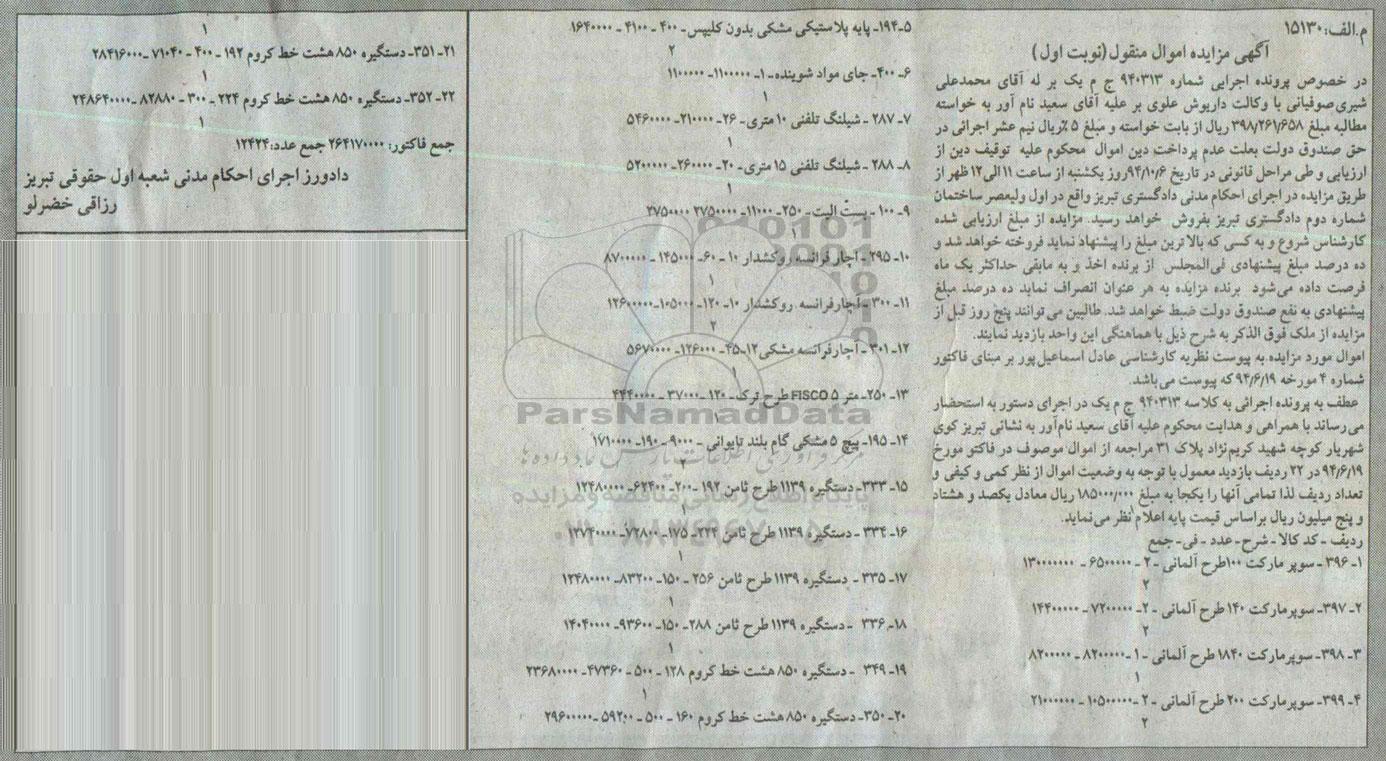 م.الف: ۱۵۱۳۰
آگهی مزایده اموال منقول (نوبت اول)
در خصوص پرونده اجرایی شماره ۹۴۰۳۱۳ ج م یک بر له آقای محمدعلی
شیری‌صوفیانی با وکالت داریوش علوی بر علیه آقای سعید نام آور به خواسته
مطالبه مبلغ ۳۹۸/۲۶۱/۶۵۸ ریال از بابت خواسته و مبلغ ۵٪ریال نیم عشر اجرائی در
حق صندوق دولت بعلت عدم پرداخت دین اموال محکوم علیه توقیف دین از
ارزیابی و طی مراحل قانونی در تاریخ ۹۴/۱۰/۶روز یکشنبه از ساعت ۱۱ الی۱۲ ظهر از
طریق مزایده در اجرای احکام مدنی دادگستری تبریز واقع در اول ولیعصر ساختمان
شماره دوم دادگستری تبریز بفروش خواهد رسید. مزایده از مبلغ ارزیابی شده
کارشناس شروع و به کسی که بالا ترین مبلغ را پیشنهاد نماید فروخته خواهد شد و
ده درصد مبلغ پیشنهادی فی‌المجلس از برنده اخذ و به مابقی حداکثر یک ماه
فرصت داده می‌شود برنده مزایده به هر عنوان انصراف نماید ده درصد مبلغ
پیشنهادی به نفع صندوق دولت ضبط خواهد شد. طالبین می توانند پنج روز قبل از
مزایده از ملک فوق الذکر به شرح ذیل با هماهنگی این واحد بازدید نمایند.
اموال مورد مزایده به پیوست نظریه کارشناسی عادل اسماعیل‌پور بر مبنای فاکتور
شماره ۴ مورخه ۹۴/۶/۱۹ که پیوست می‌باشد.
عطف به پرونده اجرائی به کلاسه ۹۴۰۳۱۳ ج م یک در اجرای دستور به استحضار
می‌رساند با همراهی و هدایت محکوم علیه آقای سعید نام‌آور به نشانی تبریز کوی
شهریار کوچه شهید کریم‌نژاد پلاک ۳۱ مراجعه از اموال موصوف در فاکتو مورخ
۹۴/۶/۱۹ در ۲۲ ردیف بازدید معمول با توجه به وضعیت اموال از نظر کمی و کیفی و
تعداد ردیف لذا تمامی آنها را یکجا به مبلغ ۱۸۵۰۰۰/۰۰۰ ریال معادل یکصد و هشتاد
و پنج میلیون ریال براساس قیمت پایه اعلام نظر می‌نماید.
ردیف - کد کالا - شرح - عدد - فی - جمع
۱- ۳۹۶ - سوپر مارکت ۱۰۰طرح آلمانی - ۲ - ۶۵۰۰۰۰۰ - ۱۳۰۰۰۰۰۰
۲
۲- ۳۹۷- سوپرمارکت ۱۴۰ طرح آلمانی - ۲- ۷۲۰۰۰۰۰ - ۱۴۴۰۰۰۰۰
۲
۳- ۳۹۸- سوپرمارکت ۱۸۴۰ طرح آلمانی - ۱ -۸۲۰۰۰۰۰ - ۸۲۰۰۰۰۰
۱
۴- ۳۹۹- سوپرمارکت ۲۰۰ طرح آلمانی - ۲ -۱۰۵۰۰۰۰۰ - ۲۱۰۰۰۰۰۰
۲
۵- ۱۹۴- پایه پلا ستیکی مشکی بدون کلیپس- ۴۰۰ - ۴۱۰۰ - ۱۶۴۰۰۰۰
۲
۶- ۴۰۰- جای مواد شوینده- ۱- ۱۱۰۰۰۰۰- ۱۱۰۰۰۰۰
۱
۷- ۲۸۷ - شیلنگ تلفنی ۱۰ متری- ۲۶- ۲۱۰۰۰۰- ۵۴۶۰۰۰۰
۱
۸- ۲۸۸ - شیلنگ تلفنی ۱۵ متری- ۲۰- ۲۶۰۰۰۰- ۵۲۰۰۰۰۰
۱
۹- ۱۰۰ - بست الیت- ۲۵۰- ۱۱۰۰۰- ۲۷۵۰۰۰۰ ۲۷۵۰۰۰۰
۱
۱۰- ۲۹۵ - آچار فرانسه روکشدار ۱۰ - ۶۰- ۱۴۵۰۰۰ - ۸۷۰۰۰۰۰
۱
۱۱- ۳۰۰ - آچارفرانسه روکشدار ۱۰- ۱۲۰- ۱۰۵۰۰۰- ۱۲۶۰۰۰۰۰
۲
۱۲- ۳۰۱ - آچارفرانسه مشکی۱۲- ۴۵- ۱۲۶۰۰۰- ۵۶۷۰۰۰۰
۱
۱۳- ۲۵۰- متر ۵ FISCO طرح ترک- ۱۲۰ - ۳۷۰۰۰ - ۴۴۴۰۰۰۰
۱
۱۴- ۱۹۵- پیچ ۵ مشکی گام بلند تایوانی - ۹۰۰۰ - ۱۹۰- ۱۷۱۰۰۰۰
۲
۱۵- ۳۳۳- دستگیره ۱۱۳۹ طرح ثامن ۱۹۲ -۲۰۰- ۶۲۴۰۰- ۱۲۴۸۰۰۰۰
۱
۱۶- ۳۳۴ - دستگیره ۱۱۳۹ طرح ثامن ۲۲۴- ۱۷۵- ۷۲۸۰۰- ۱۲۷۴۰۰۰۰
۱
۱۷- ۳۳۵ - دستگیره ۱۱۳۹ طرح ثامن ۲۵۶ - ۱۵۰- ۸۳۲۰۰- ۱۲۴۸۰۰۰۰
۱
۱۸- ۳۳۶ - دستگیره ۱۱۳۹ طرح ثامن ۲۸۸- ۱۵۰- ۹۳۶۰۰- ۱۴۰۴۰۰۰۰
۱
۱۹- ۳۴۹ - دستگیره ۸۵۰ هشت خط کروم ۱۲۸ - ۵۰۰ - ۴۷۳۶۰- ۲۳۶۸۰۰۰۰
۱
۲۰- ۳۵۰- دستگیره ۸۵۰ هشت خط کروم ۱۶۰ - ۵۰۰ - ۵۹۲۰۰ - ۲۹۶۰۰۰۰۰
۱
۲۱- ۳۵۱- دستگیره ۸۵۰ هشت خط کروم ۱۹۲ - ۴۰۰ - ۷۱۰۴۰ -۲۸۴۱۶۰۰۰
۱
۲۲- ۳۵۲- دستگیره ۸۵۰ هشت خط کروم ۲۲۴ - ۳۰۰ - ۸۲۸۸۰ - ۲۴۸۶۴۰۰۰
۱
جمع فاکتور: ۲۶۴۱۷۰۰۰۰ جمع عدد: ۱۲۴۲۴
دادورز اجرای احکام مدنی شعبه اول حقوقی تبریز
رزاقی خضرلو
ParsNamadData
پایگاه اطلاع رسانی مناقصه و مزایده